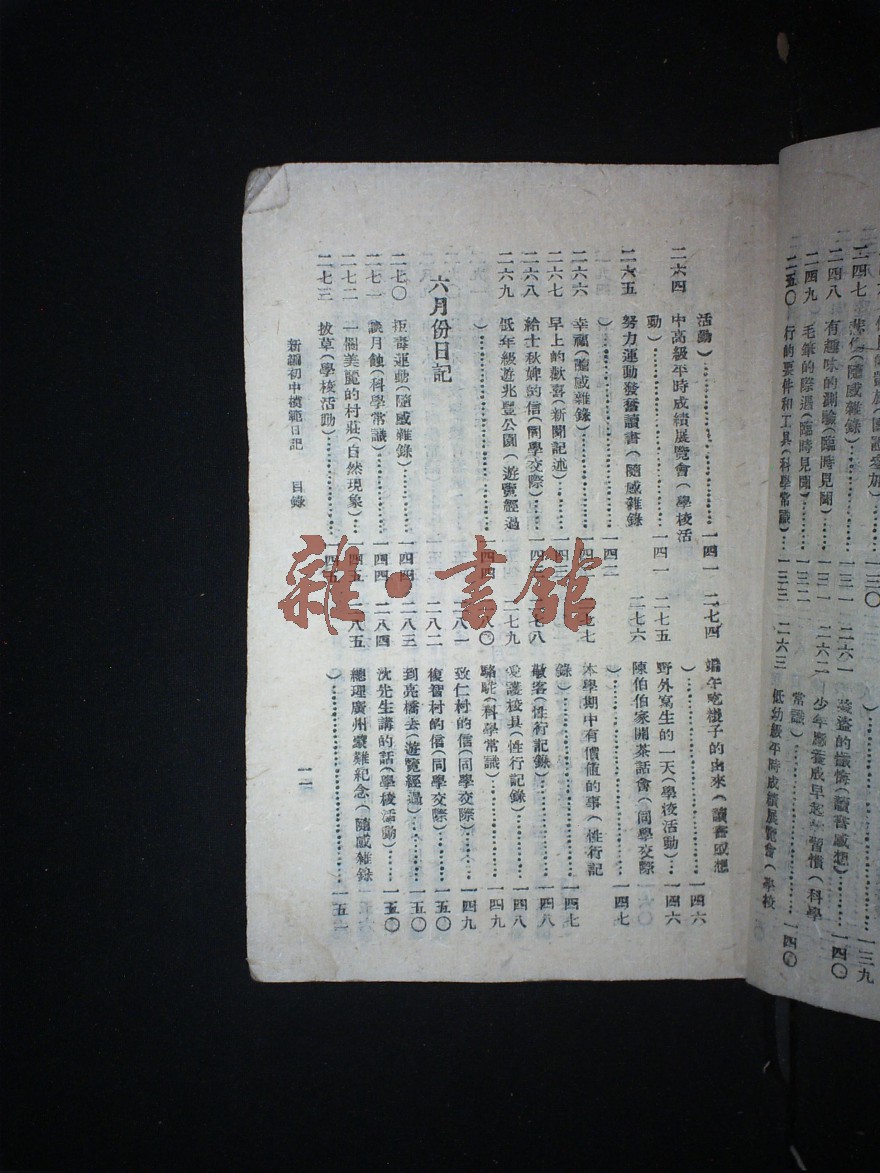 二四七 悲傷(隨感雜錄)
二四八 有趣味的測驗(臨時見聞)……一三一
二四九 毛筆的際遇(臨時見聞)……一三二
二五〇 行的要件和工具(科學常識)……一三三
一三九
的懺悔(讀書感想)……一四〇
二六二 少年應養成早起習慣(科學
常識)……一四〇
二六三 低幼級平時成績展覽會(學校
活動)……一四一
二六四 中高級平時成績展覽會(學校活
動)……一四一
二六五 努力運動發奮讀書(隨感雜錄
)……一四二
二六六 幸福(隨感雜錄)……
二六七 早上的歡喜(新聞記述)……
二六八 給士秋婢的信(同學交際)……
二六九 低年級遊兆豐公園(遊覽經過
)……一四四
六月份日記
二七〇 拒毒運動(隨感雜錄)……一四四
二七一 談月蝕(科學常識)……一四四
二七二 一個美麗的村莊(自然現象)……一四五
二七三 拔草(學校活動)……一四五
二七四 端午吃糉子的由來(讀書感想
)……一四六
二七五 野外寫生的一天(學校活動)……一四六
二七六 陳伯伯家開茶話會(同學交際
)……一四七
本學期中有價值的事(性行記
錄)……一四七
二七八 敬客(性行記錄)……一四八
二七九 愛護校具(性行記錄)……一四八
二八〇 駱駝(科學常識)……一四九
二八一 致仁村的信(同學交際)……一四九
二八二 復智村的信(同學交際)……一五〇
二八三 到亮橋去(遊覽經過)……一五〇
二八四 沈先生講的話(學校活動)……一五〇
二八五 總理廣州蒙難紀念(隨感雜錄
)……一五一
新編初中模範日記 目錄
一一
雜·書館